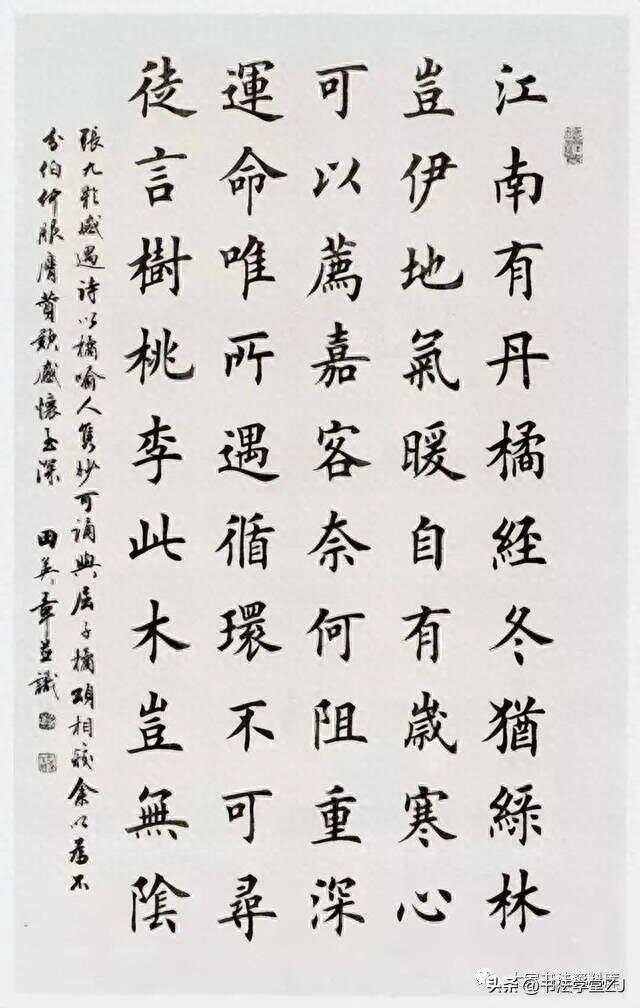 江南有丹橘經冬猶綠林
豈伊地氣暖自有歲寒心
可以薦嘉客奈何阻重深
運命唯所遇循環不可尋
徒言樹桃李此木豈無陰
張九齡感遇詩以橘喻人雋妙可誦與屈子橘頌相較余以為不
分伯仲服膺贊歎感懷至深 田英章並識
头条@书法学堂ZJ